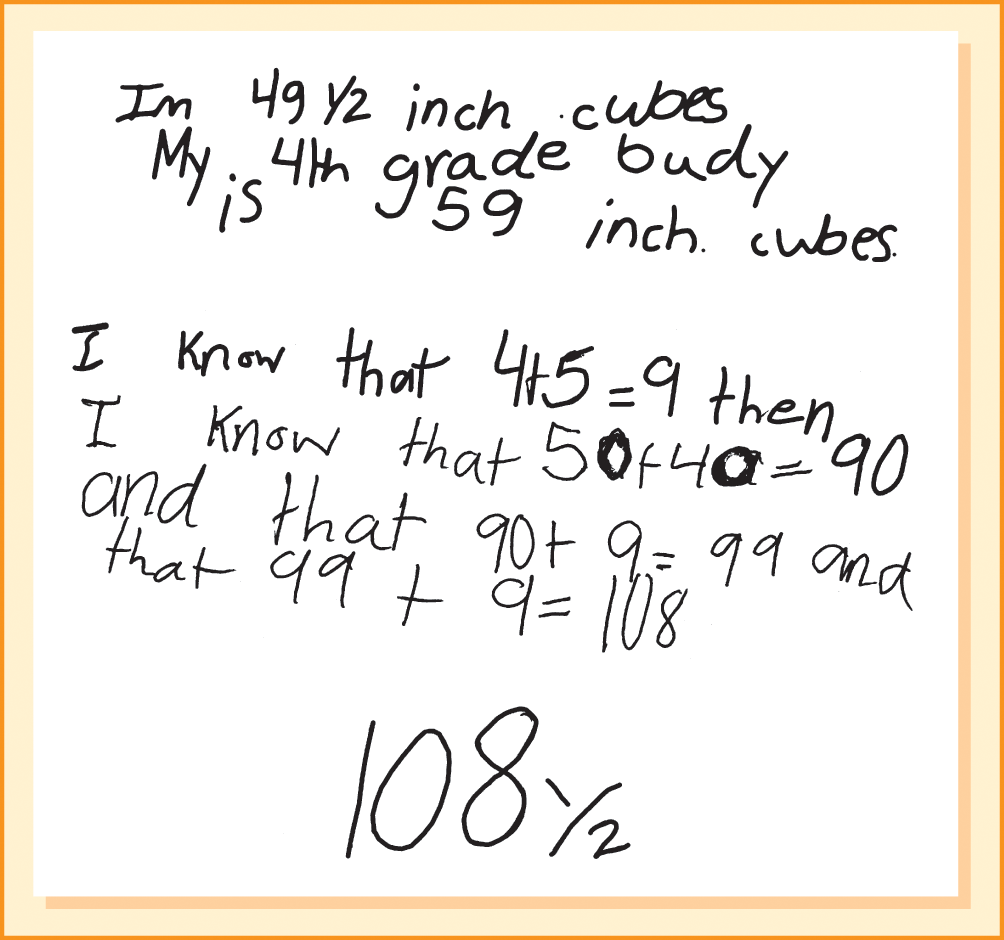 Im 49 1/2 inch cubes
My 4th grade budy
is 59 inch. cubes.
I know that 4+5=9 then
I know that 50+40=90
and that 90+9=99 and
that 99+9=108
108 1/2